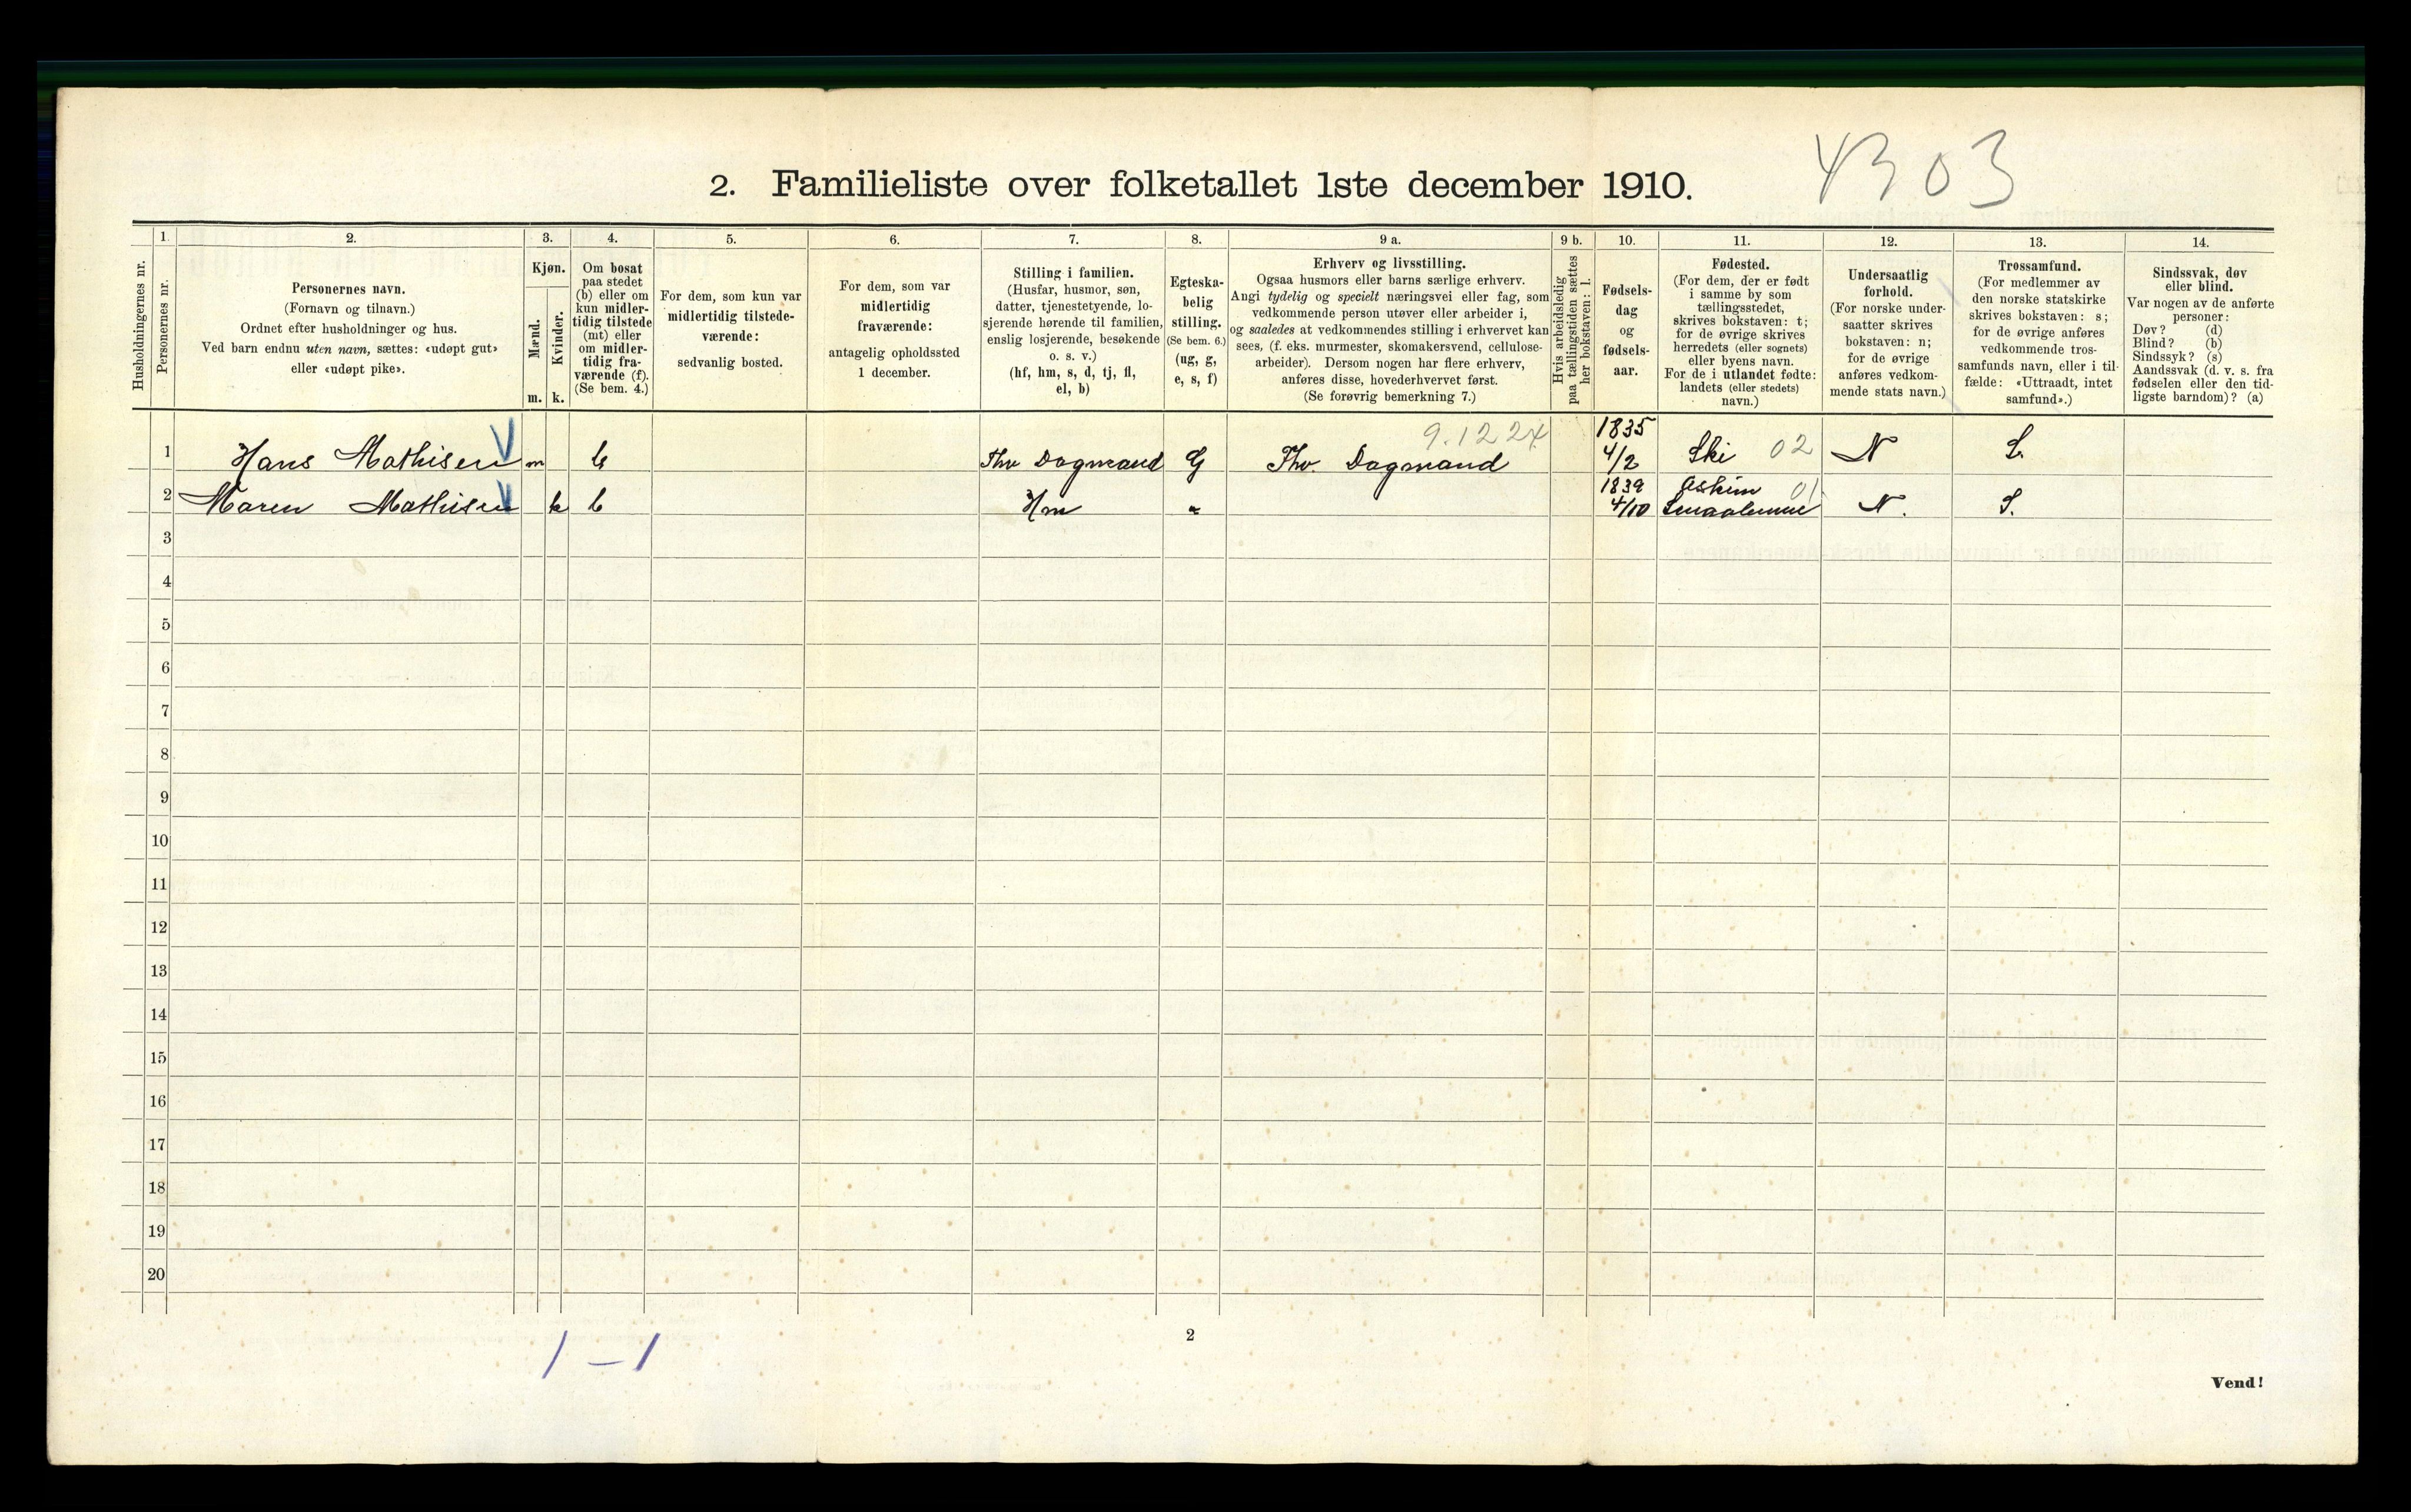 4303
2. Familieliste over folketallet 1ste december 1910.
Husholdningernes nr.
1.
Personernes nr.
2.
Personernes navn.
(Fornavn og tilnavn.)
Ordnet efter husholdninger og hus.
Ved barn endnu uten navn, sættes: «udøpt gut»
eller «udøpt pike».
3.
Kjøn.
Mænd.
Kvinder.
m. k.
4.
Om bosat
paa stedet
(b) eller om
kun midler-
tidig tilstede
(mt) eller
om midler-
tidig fra-
værende (f).
(Se bem. 4.)
5.
For dem, som kun var
midlertidig tilstede-
værende:
sedvanlig bosted.
6.
For dem, som var
midlertidig
fraværende:
antagelig opholdssted
1 december.
7.
Stilling i familien.
(Husfar, husmor, søn,
datter, tjenestetyende, lo-
sjerende hørende til familien,
enslig losjerende, besøkende
o. s. v.)
(hf, hm, s, d, tj, fl,
el, b)
8.
Egteska-
belig
stilling.
(Se bem. 6.)
(ug, g,
e, s, f)
9 a.
Erhverv og livsstilling.
Ogsaa husmors eller barns særlige erhverv.
Angi tydelig og specielt næringsvei eller fag, som
vedkommende person utøver eller arbeider i,
og saaledes at vedkommendes stilling i erhvervet kan
sees, (f. eks. murmester, skomakersvend, cellulose-
arbeider). Dersom nogen har flere erhverv,
anføres disse, hovederhvervet først.
(Se forøvrig bemerkning 7.)
9 b.
Hvis arbeidsledig
paa tællingstiden sættes
her bokstaven: l.
10.
Fødsels-
dag
og
fødsels-
aar.
11.
Fødested.
(For dem, der er født
i samme by som
tællingsstedet,
skrives bokstaven: t;
for de øvrige skrives
herredets (eller sognets)
eller byens navn.
For de i utlandet fødte:
landets (eller stedets)
navn.)
12.
Undersaatlig
forhold.
(For norske under-
saatter skrives
bokstaven: n;
for de øvrige
anføres vedkom-
mende stats navn.)
13.
Trossamfund.
(For medlemmer av
den norske statskirke
skrives bokstaven: s;
for de øvrige anføres
vedkommende tros-
samfunds navn, eller i til-
fælde: «Uttraadt, intet
samfund».)
14.
Sindssvak, døv
eller blind.
Var nogen av de anførte
personer:
Døv? (d)
Blind? (b)
Sindssyk? (s)
Aandssvak (d. v. s. fra
fødselen eller den tid-
ligste barndom)? (a)
9.1224 1835
1 Hans Mathisen m b Dagmand G Dagmand 4/2 Ski 02 N S.
1839 Askim 01
2 Maren Mathisen k b Hm " 4/10 N. S.
3
4
5
6
7
8
9
10
11
12
13
14
15
16
17
18
19
20
1 – 1
2
Vend!